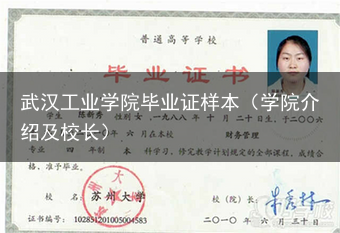 普通高等学校
毕业证书
学生 陈新秀 性别 女，一九八八年 十 月 二十 日生，于二〇〇六
武汉工业学院毕业证样本（学院介
绍及校长）
年 六 月在本校 财务管理
专业 四 年制 本 科学习，修完教学计划规定的全部课程，成绩合
格，准予毕业。
校 名： 苏州大学 校（院）长：
证书编号： 102851201005004583 二〇一〇年 六 月 三十 日